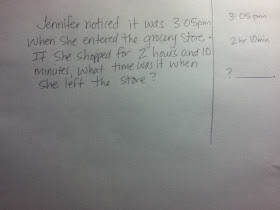 Jennifer noticed it was 3:05pm
when she entered the grocery store.
If she shopped for 2 hours and 10
minutes, what time was it when
she left the store?
3:05pm
2hr 10min
? ____